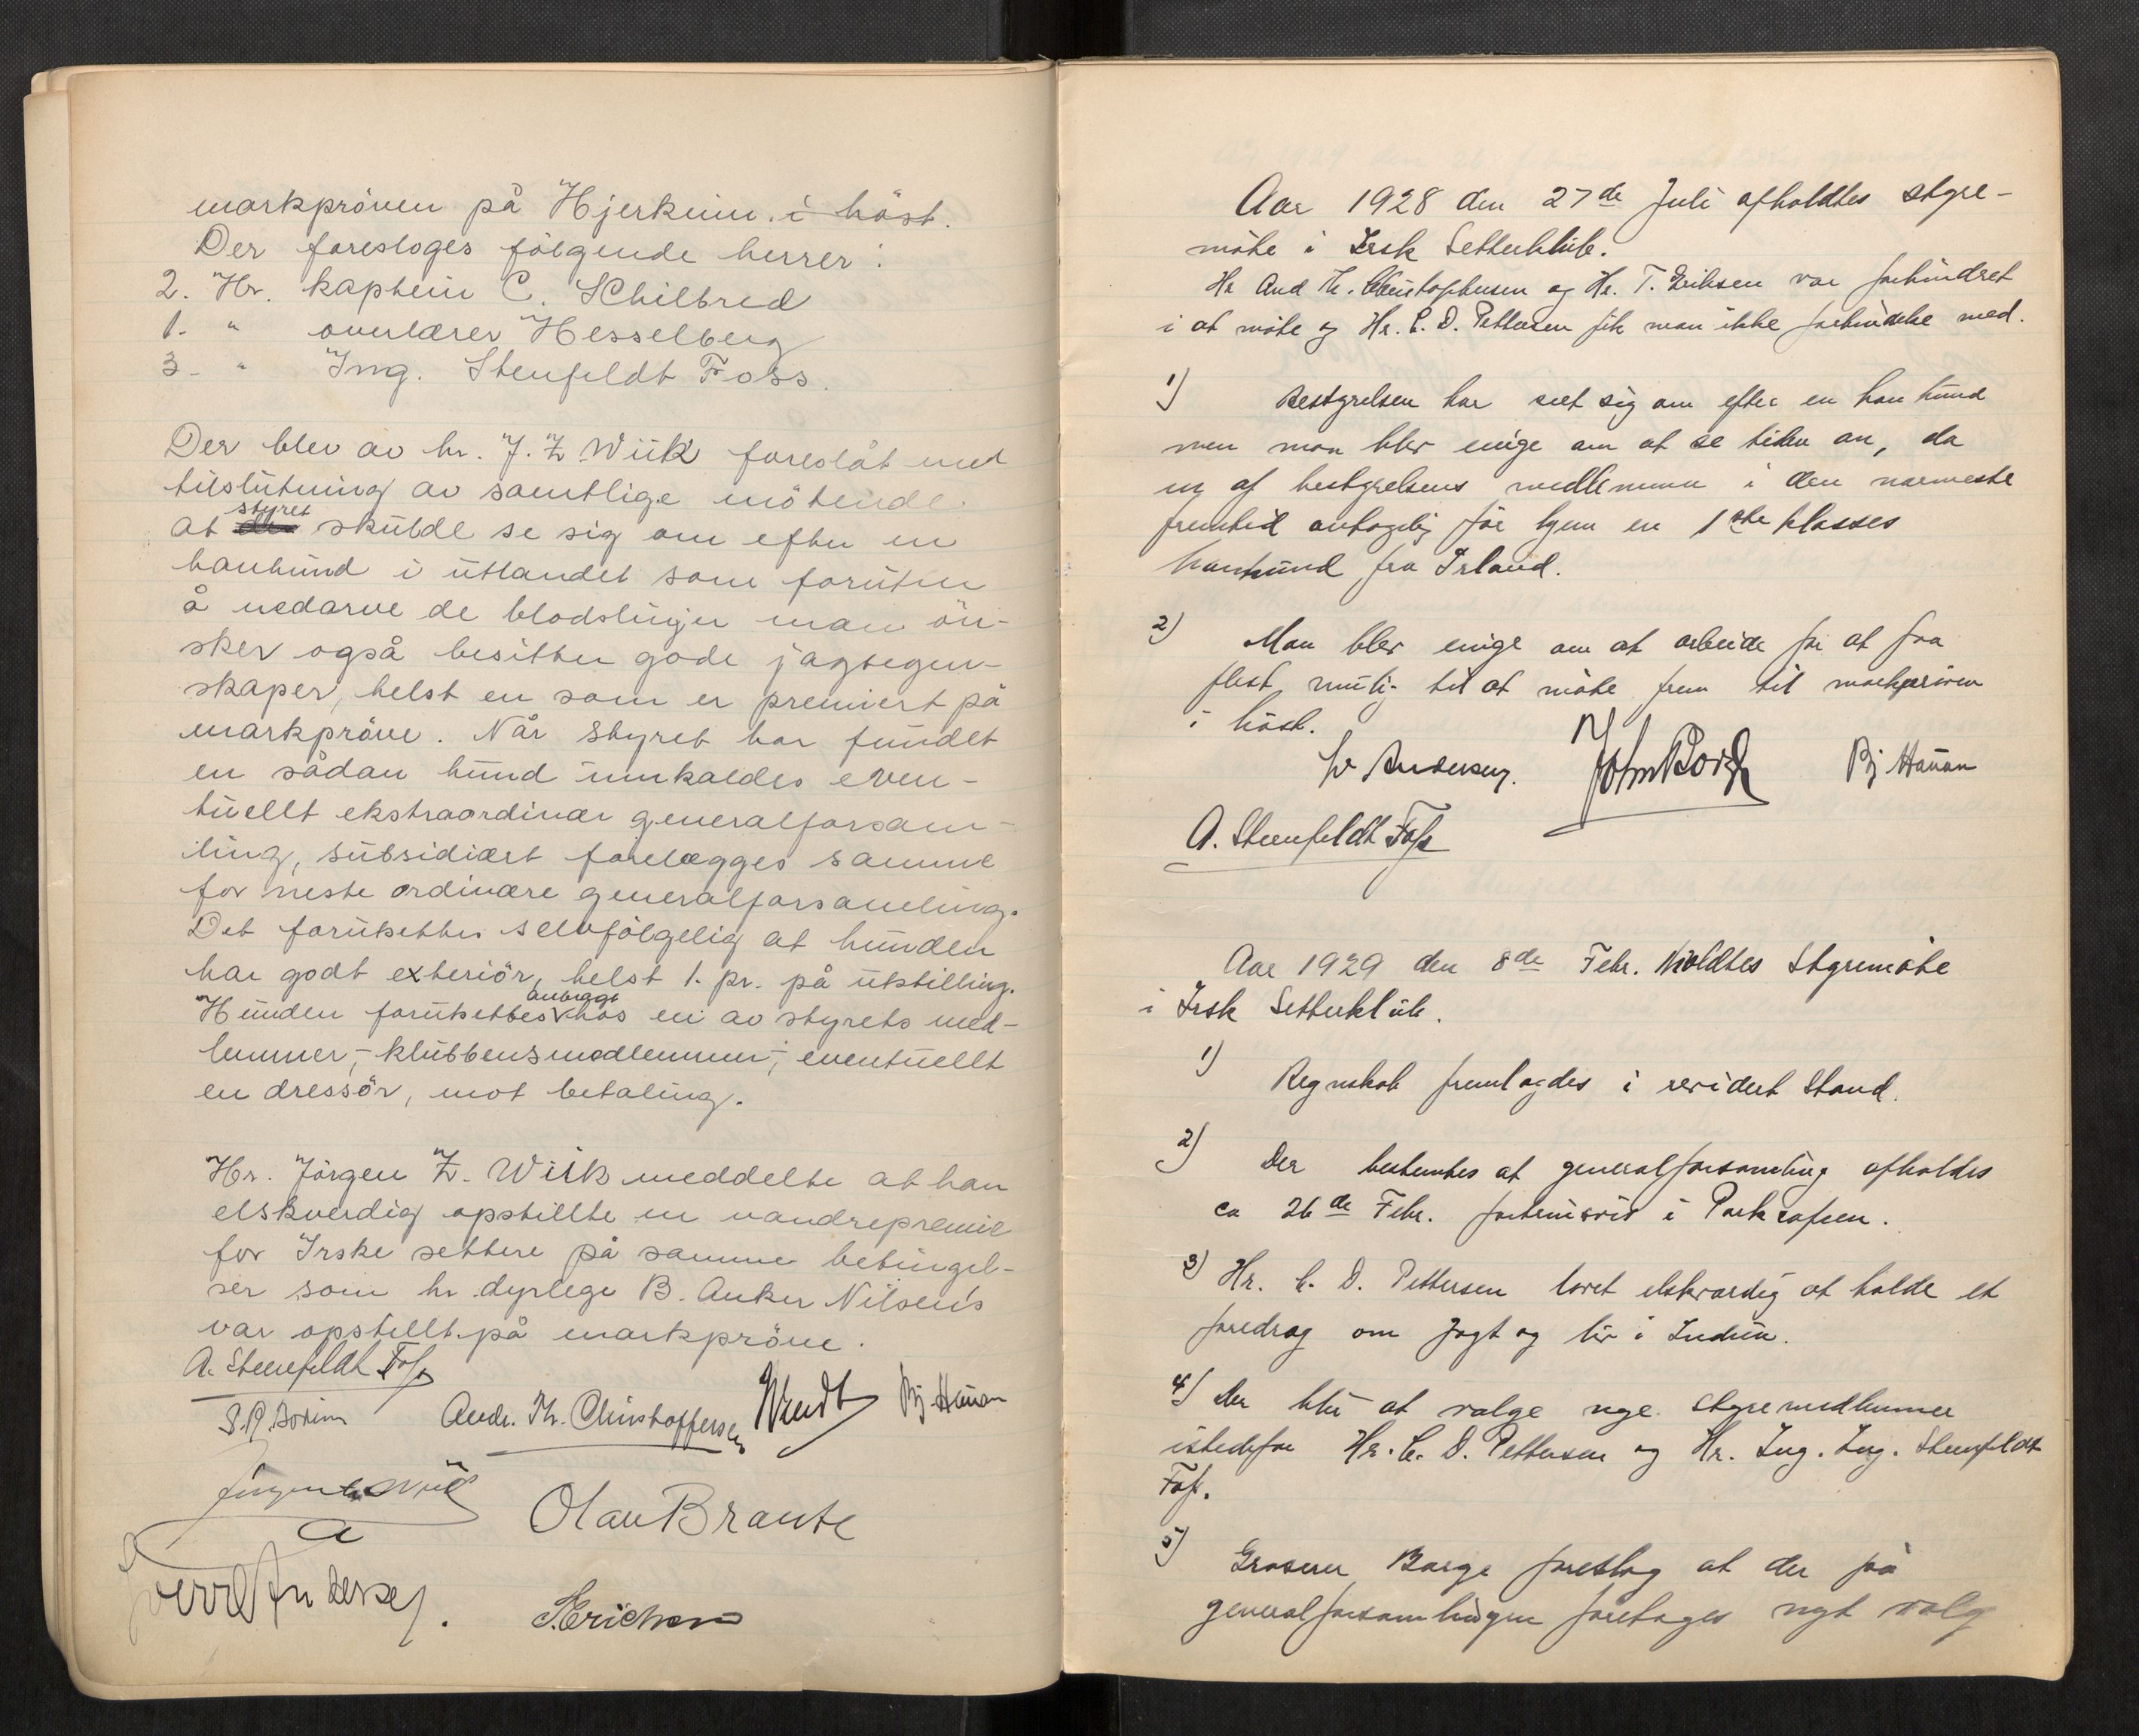 markpröven på Hjerkinn i höst.
Der foresloges fölgende herrer:
2. Hr. kaptein C. Schilbred
1. " overlærer Hesselberg
3. " Ing. Stenfeldt Foss.
Der blev av hr. J. Z. Wiik foreslåt med
tilslutning av samtlige mötende
styret
at skulde se sig om efter en
hanhund i utlandet som foruten
å nedarve de blodslinjer man ön-
sker også besitter gode jagtegen-
skaper, helst en som er premiert på
markpröve. Når styret har fundet
en sådan hund innkaldes even-
tuellt ekstraordinær generalforsam-
ling, subsidiært forelægges samme
for neste ordinære generalforsamling.
Det forutsettes selvfölgelig at hunden
har godt exteriör, helst 1. pr. på utstilling.
anbragt
Hunden forutsettes hos en av styrets med-
lemmer, - klubbens medlemmer, - eventuellt
en dressör, mot betaling.
Hr. Jörgen Z. Wiik meddelte at han
elskverdig opstillte en vandrepremie
for Irske settere på samme betingel-
ser som hr. dyrlege B. Anker Nilsen's
var opstillt på markpröve.
A. Steenfeldt Foss
Andr. Th. Christoffersen Wendt Bj. Hauan
Jörgen Z. Wiik
Olav Brante
Andersen.
T. Erichsen
Aar 1928 den 27de Juli afholdtes styre-
möte i Irsk Setterklub.
Hr And Th. Christophersen og Hr. T. Eriksen var forhindret
i at möte og Hr. C. D. Pettersen fik man ikke forbindelse med.
1) Bestyrelsen har seet sig om efter en han hund
men man blev enige om at se tiden an, da
en af bestyrelsens medlemmer i den nærmeste
fremtid antagelig får hjem en 1ste klasses
hanhund fra Irland.
2) Man blev enige om at arbeide for at faa
flest mulig til at möte frem til markpröven
i höst.
Andersen. John Borge Bj. Hauan
A. Steenfeldt Foss
Aar 1929 den 8de Febr. holdtes Styremöte
i Irsk Setterklub.
1) Regnskab fremlagdes i revidert Stand.
2) Der bestemtes at generalforsamling afholdes
ca 26de Febr. fortrinsvis i Parkcafeen.
3) Hr. C. D. Pettersen lovet elskværdig at holde et
foredrag om Jagt og liv i Indien.
4) Der blir at vælge nye styremedlemmer
istedefor Hr. C. D. Pettersen og Hr. Ing. Ing. Steenfeldt
Foss.
5) Grosserer Borge foreslog at der på
generalforsamlingen foretages nyt valg